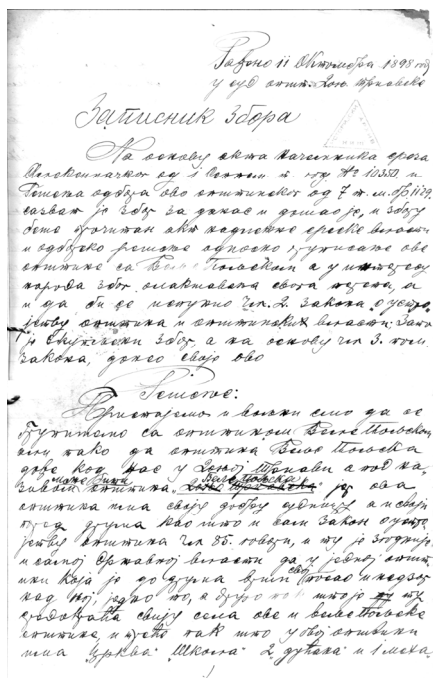 Рађено 11 Октомбра 1898 год
у суд општ. Доњ. Трнавске
Записник Збора
На основу акта начелника среза
од 1 т. год № 10350 и
одбора ове општинског од 7 т. м. бр 1129
сазват је збор за данас и дошао је, и збору
беше прочитан акт надлежне среске власти
и одборско решење односно ове
општине са Бело Пољском а у интересу
народа ради олакшавања свога терета, а
и да би се испунио чл. 2. закона о устро-
јству општина и општинских власти. Зато
је Скупљени Збор, а на основу чл 3. пом.
закона, донео своје ово
Решење:
Пристајемо и вољни смо да се
са општином Бело Пољском
али тако да општина Бело Пољска
дође код нас у Доњој Трнави а под на-
зивом општина "Доња Трнавска" јер ова
може бити Бело Пољска
општина има своју добру судницу а и своји
пред као што и сам Закон о устро-
јству општина чл 85. говори, и ту је згодније
и самој Државној власти да у једној општи-
ни која је до врши свој посао и надзор
код њој, једно то, а друго што је ту
свију села ове и Бело Пољске
општине, и треће тако што у овој општини
има Црква Школа 2 дућана и 1 меха-